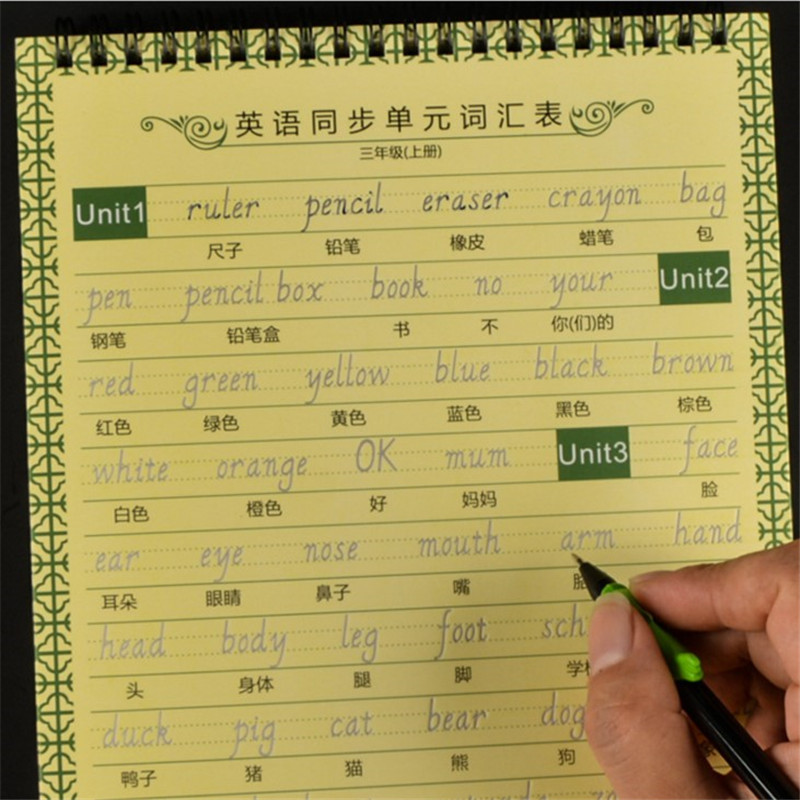 英语同步单元词汇表
三年级(上册)
Unit1 ruler pencil eraser crayon bag
尺子 铅笔 橡皮 蜡笔 包
pen pencil box book no your Unit2
钢笔 铅笔盒 书 不 你(们)的
red green yellow blue black brown
红色 绿色 黄色 蓝色 黑色 棕色
white orange OK mum Unit3 face
白色 橙色 好 妈妈 脸
ear eye nose mouth arm hand
耳朵 眼睛 鼻子 嘴
head body leg foot
头 身体 腿 脚
duck pig cat bear dog
鸭子 猪 猫 熊 狗